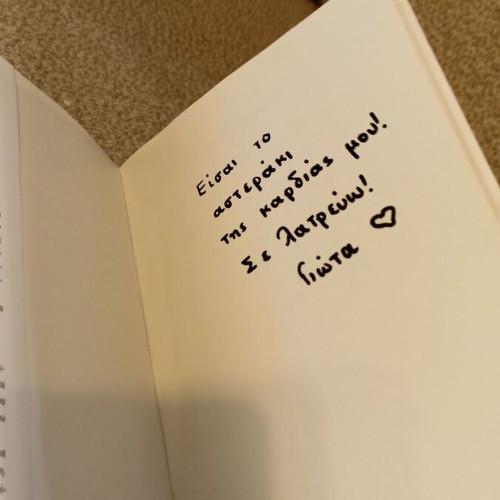 Είσαι το
αστεράκι
της καρδιάς μου!
Σε λατρεύω!
Γιώτα ♡